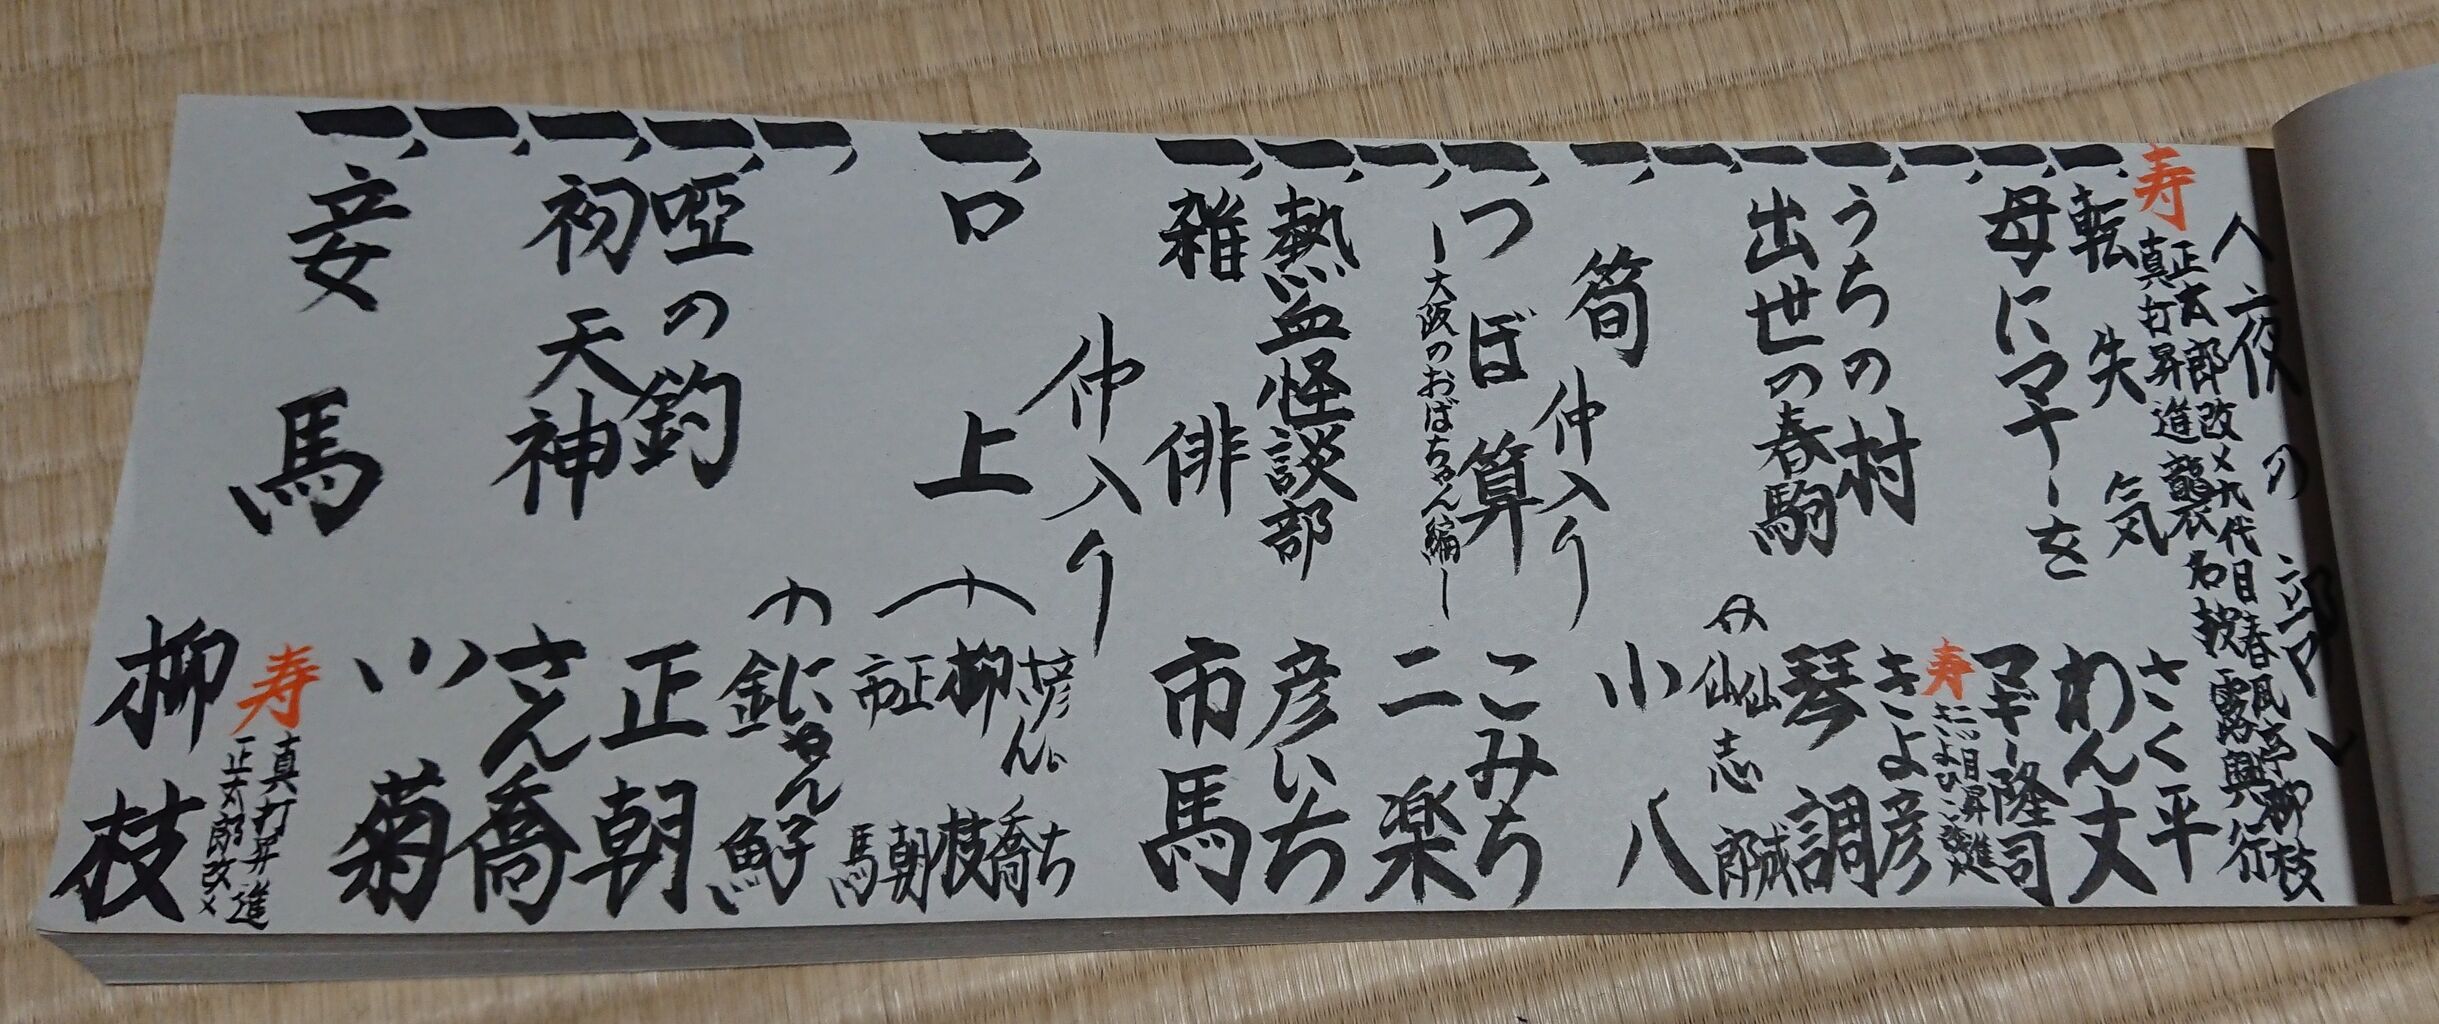 夜の部
寿
正太郎改メ九代目春風亭柳枝
真打昇進襲名披露興行
一、転失気 さく平
わん丈
一、母にマナーを マギー隆司
寿
二ッ目昇進
一、 きよ彦
一、うちの村
一、出世の春駒 琴調
一、 仙志郎
仙成
一、筍 小八
仲入り
一、つぼ算 こみち
ー大阪のおばちゃん編ー
一、 二楽
一、熱血怪談部 彦いち
一、雑俳 市馬
仲入り
一、口上
彦いち
さん喬
柳枝
正朝
市馬
一、 にゃん子
金魚
一、啞の釣 正朝
一、初天神 さん喬
一、 小菊
寿
真打昇進
正太郎改メ
一、妾馬 柳枝